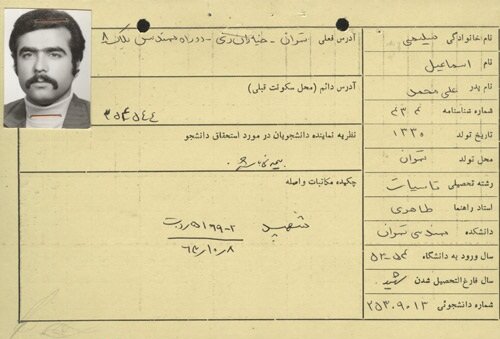 نام خانوادگی سلیمی
نام اسماعیل
نام پدر علی محمد
شماره شناسنامه ۴۳۴
تاریخ تولد ۱۳۳۵
محل تولد تهران
رشته تحصیلی تاسیسات
استاد راهنما طاهری
دانشکده مهندسی تهران
سال ورود به دانشگاه ۵۴-۵۳
سال فارغ التحصیل شدن شهید
شماره دانشجوئی ۲۵۳۰۹۰۱۳
آدرس فعلی تهران - خیابان ری - پلاک ۸
آدرس دائم (محل سکونت قبلی)
۳۵۴۵۴۴
نظریه نماینده دانشجویان در مورد استحقاق دانشجو
چکیده مکاتبات واصله
شهید
۵۱۶۹-۲
۶۴/۱۰/۸